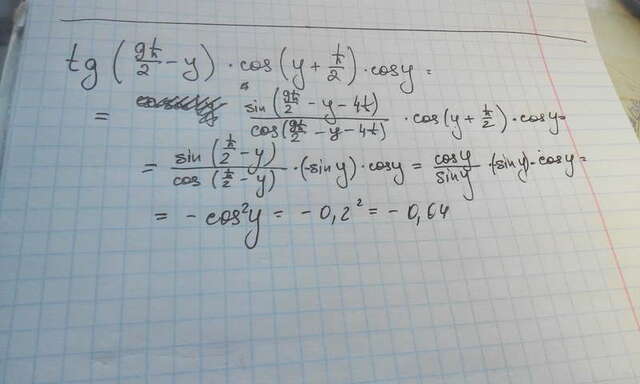 tg (9π/2 - y) · cos(y + π/2) · cosy =
= sin(9π/2 - y - 4π)/cos(9π/2 - y - 4π) · cos(y + π/2) · cosy =
= sin(π/2 - y)/cos(π/2 - y) · (-sin y) · cosy = cosy/siny · (-sin y) · cosy =
= - cos²y = - 0,2² = - 0,64